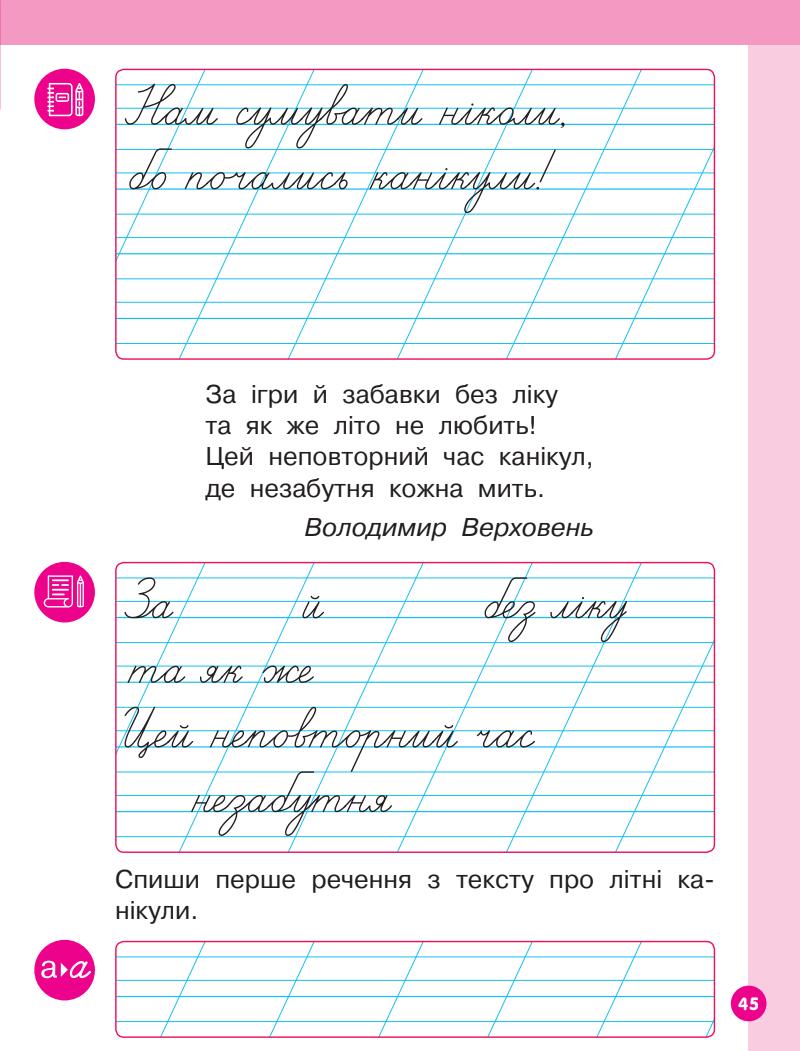 Нам сумувати ніколи,
бо почались канікули!
За ігри й забавки без ліку
та як же літо не любить!
Цей неповторний час канікул,
де незабутня кожна мить.
Володимир Верховень
За й без ліку
та як же
Цей неповторний час
незабутня
Спиши перше речення з тексту про літні ка-
нікули.
а а
45